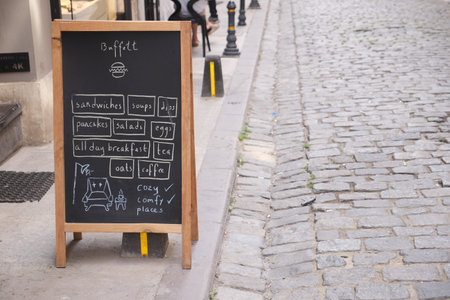 Buffett
sandwiches soups dips
pancakes salads eggs
all day breakfast tea
oats coffee
cozy
comfy
places